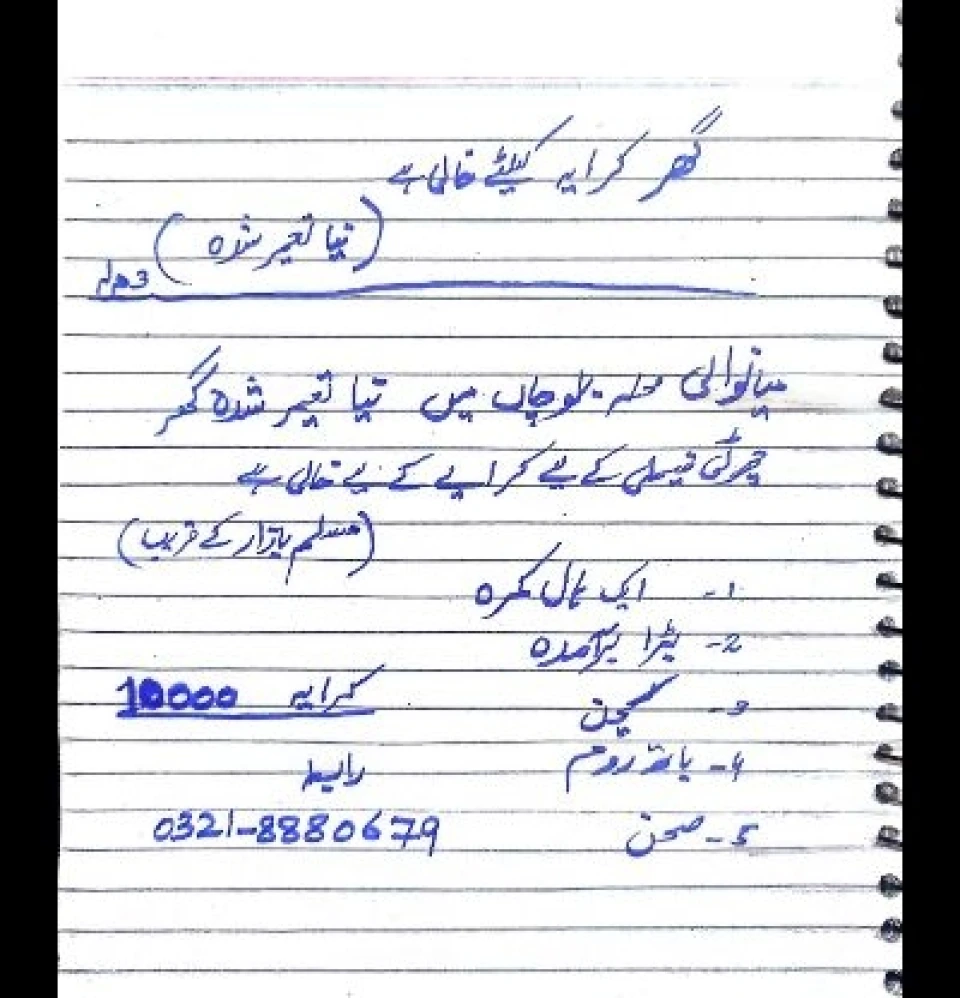 گھر کرایہ کیلئے خالی ہے
(نیا تعمیر شدہ)
3 مرلہ
میانوالی محلہ بلوچاں میں نیا تعمیر شدہ گھر
چھوٹی فیملی کے لیے کرایے کے لیے خالی ہے
(مسلم بازار کے قریب)
1- ایک ہال کمرہ
2- بڑا برآمدہ
3- کچن
کرایہ 10000
4- باتھ روم
رابطہ
5- صحن
0321-8880679